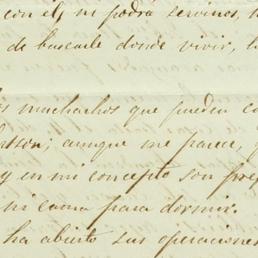 con el, ni podrá servirnos,
de buscarle donde vivir,
muchachos que pueden
aunque me parece,
y en mi concepto son
ni cama para dormir.
ha abierto sus operaciones